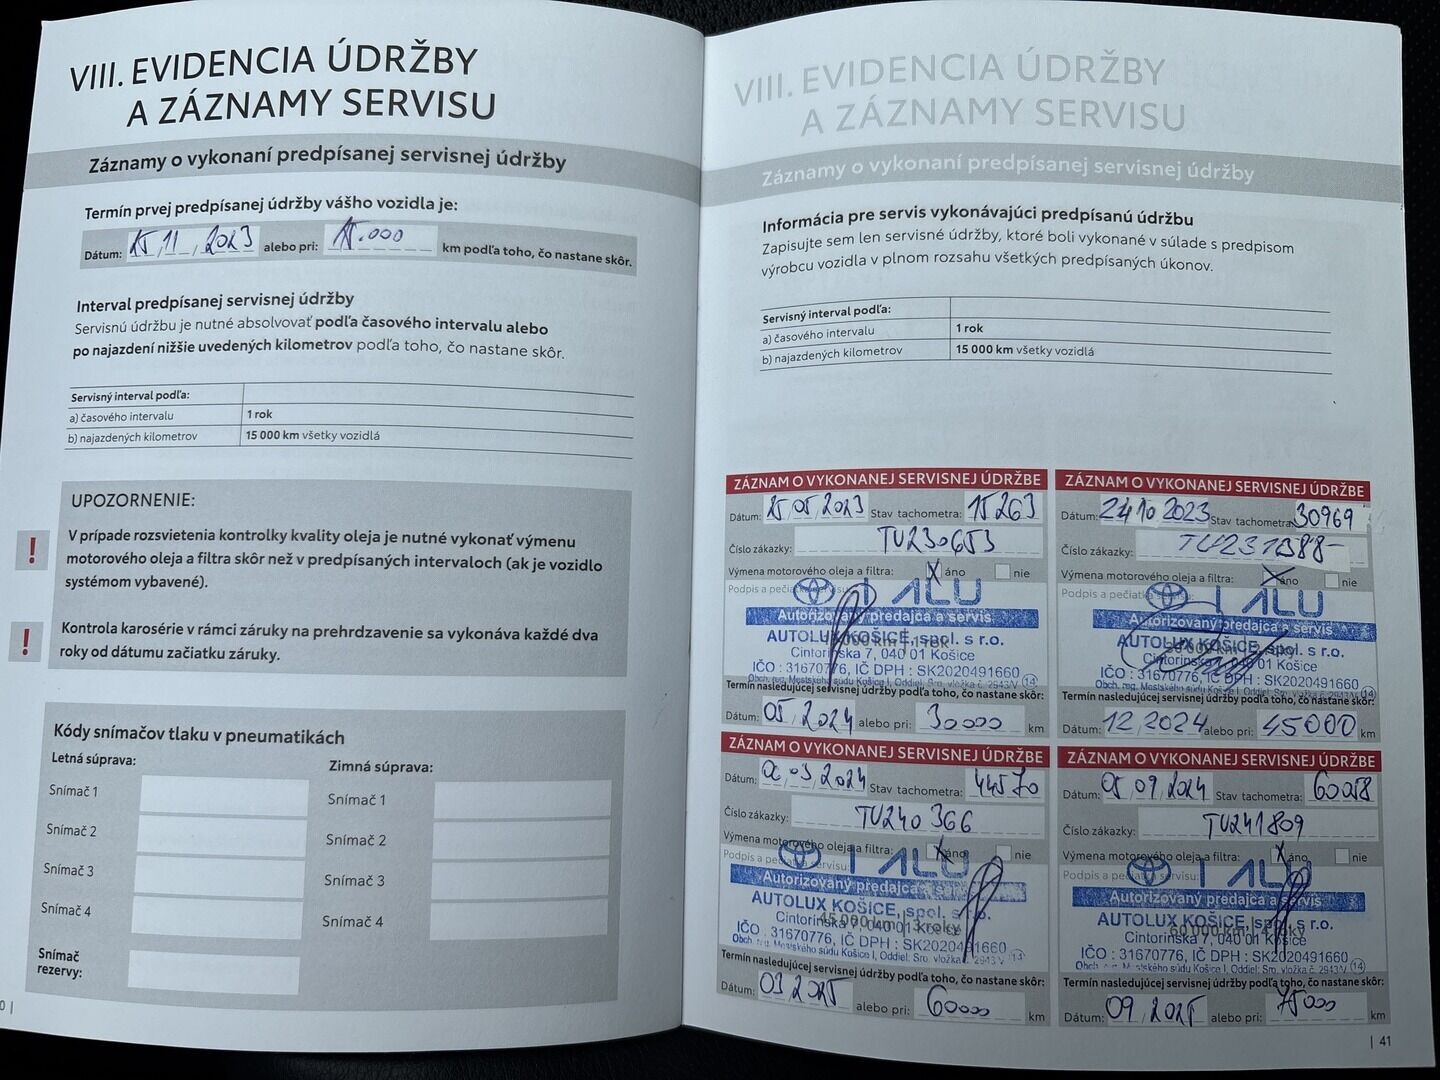 VIII. EVIDENCIA ÚDRŽBY
A ZÁZNAMY SERVISU
Záznamy o vykonaní predpísanej servisnej údržby
Termín prvej predpísanej údržby vášho vozidla je:
Dátum: 15, 11, 2023 alebo pri: 15.000 km podľa toho, čo nastane skôr.
Interval predpísanej servisnej údržby
Servisnú údržbu je nutné absolvovať podľa časového intervalu alebo
po najazdení nižšie uvedených kilometrov podľa toho, čo nastane skôr.
Servisný interval podľa:
a) časového intervalu 1 rok
b) najazdených kilometrov 15 000 km všetky vozidlá
UPOZORNENIE:
! V prípade rozsvietenia kontrolky kvality oleja je nutné vykonať výmenu
motorového oleja a filtra skôr než v predpísaných intervaloch (ak je vozidlo
systémom vybavené).
! Kontrola karosérie v rámci záruky na prehrdzavenie sa vykonáva každé dva
roky od dátumu začiatku záruky.
Kódy snímačov tlaku v pneumatikách
Letná súprava: Zimná súprava:
Snímač 1 Snímač 1
Snímač 2 Snímač 2
Snímač 3 Snímač 3
Snímač 4 Snímač 4
Snímač
rezervy:
0 |
VIII. EVIDENCIA ÚDRŽBY
A ZÁZNAMY SERVISU
Záznamy o vykonaní predpísanej servisnej údržby
Informácia pre servis vykonávajúci predpísanú údržbu
Zapisujte sem len servisné údržby, ktoré boli vykonané v súlade s predpisom
výrobcu vozidla v plnom rozsahu všetkých predpísaných úkonov.
Servisný interval podľa:
a) časového intervalu 1 rok
b) najazdených kilometrov 15 000 km všetky vozidlá
ZÁZNAM O VYKONANEJ SERVISNEJ ÚDRŽBE
Dátum: 25, 05, 2023 Stav tachometra: 15263
Číslo zákazky: TU230653
Výmena motorového oleja a filtra: X áno nie
Podpis a pečiatka servisu:
Autorizovaný predajca a servis
AUTOLUX KOŠICE, spol. s r.o.
Cintorínska 7, 040 01 Košice
IČO : 31670776, IČ DPH : SK2020491660
Obch. reg. Mestského súdu Košice I, Oddiel: Sro, vložka č. 2943/V 14
Termín nasledujúcej servisnej údržby podľa toho, čo nastane skôr:
Dátum: 05, 2024 alebo pri: 30000 km
ZÁZNAM O VYKONANEJ SERVISNEJ ÚDRŽBE
Dátum: 24 10 2023 Stav tachometra: 30969
Číslo zákazky: TU231388-
Výmena motorového oleja a filtra: X áno nie
Podpis a pečiatka servisu:
Autorizovaný predajca a servis
AUTOLUX KOŠICE, spol. s r.o.
Cintorínska 7, 040 01 Košice
IČO : 31670776, IČ DPH : SK2020491660
Obch. reg. Mestského súdu Košice I, Oddiel: Sro, vložka č. 2943/V 14
Termín nasledujúcej servisnej údržby podľa toho, čo nastane skôr:
Dátum: 12, 2024 alebo pri: 45000 km
ZÁZNAM O VYKONANEJ SERVISNEJ ÚDRŽBE
Dátum: 03, 2024 Stav tachometra: 44570
Číslo zákazky: TU240366
Výmena motorového oleja a filtra: X áno nie
Podpis a pečiatka servisu:
Autorizovaný predajca a servis
AUTOLUX KOŠICE, spol. s r.o.
Cintorínska 7, 040 01 Košice
45 000 km | 3 roky
IČO : 31670776, IČ DPH : SK2020491660
Obch. reg. Mestského súdu Košice I, Oddiel: Sro, vložka č. 2943/V 14
Termín nasledujúcej servisnej údržby podľa toho, čo nastane skôr:
Dátum: 03, 2025 alebo pri: 60000 km
ZÁZNAM O VYKONANEJ SERVISNEJ ÚDRŽBE
Dátum: 05, 09, 2024 Stav tachometra: 60058
Číslo zákazky: TU241809
Výmena motorového oleja a filtra: X áno nie
Podpis a pečiatka servisu:
Autorizovaný predajca a servis
AUTOLUX KOŠICE, spol. s r.o.
Cintorínska 7, 040 01 Košice
60 000 km | 4 roky
IČO : 31670776, IČ DPH : SK2020491660
Obch. reg. Mestského súdu Košice I, Oddiel: Sro, vložka č. 2943/V 14
Termín nasledujúcej servisnej údržby podľa toho, čo nastane skôr:
Dátum: 09, 2025 alebo pri: 75000 km
| 41